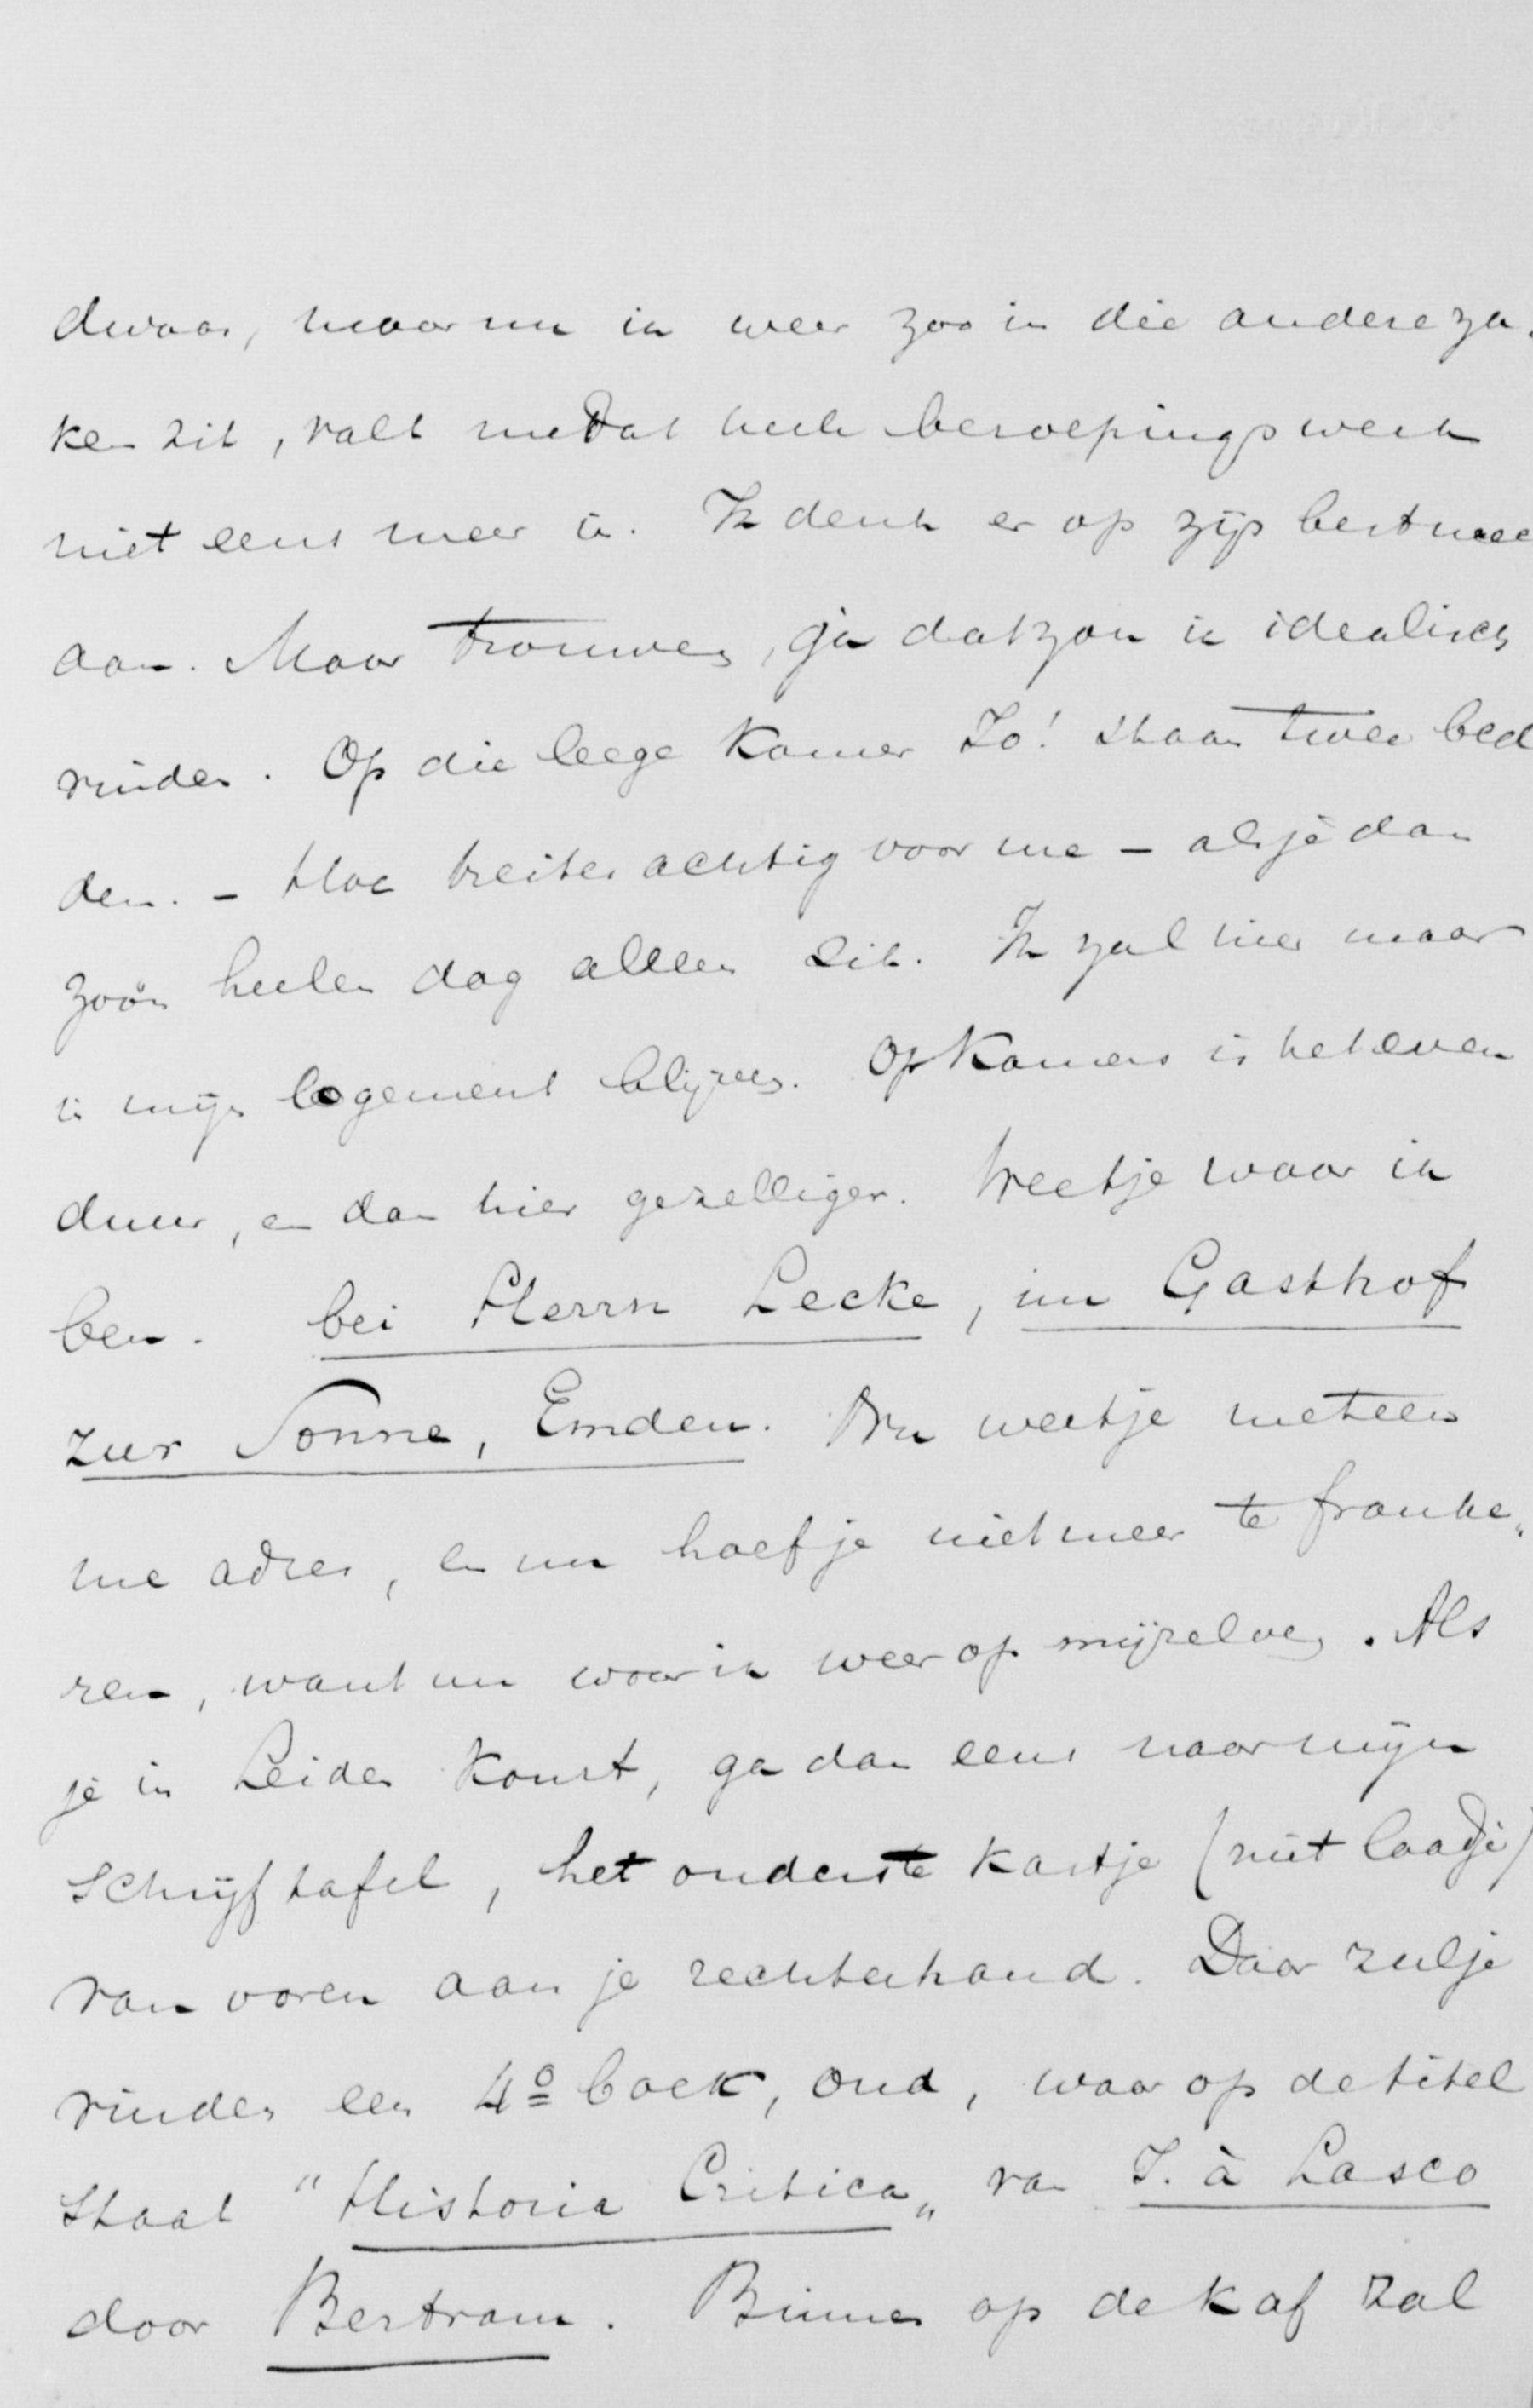 dwaas, maar nu ik weer zoo in die andere za-
ken zit, valt me dat heele beroepingswerk
niet eens meer in. Ik denk er op zijn best mee
aan. Maar trouwen, ja dat zou ik idealisch
vinden. Op die leege kamer Jo! staan twee bed
den. - Hoe treiterachtig voor me - als je dan
zoo'n heelen dag alleen zit. Ik zal hier maar
in mijn logement blijven. Op kamers is het even
duur, en dan hier gezelliger. Weetje waar ik
ben. bei Herrn Lecke, im Gasthof
zur Sonne, Emden. Nu weetje meteen
me adres, en nu hoef je niet meer te franke„
ren, want nu woon ik weer op mijzelven. Als
je in Leiden komt, ga dan eens naar mijn
schrijftafel, het onderste kastje (niet laadje)
van voren aan je rechterhand. Daar zulje
vinden een 4º boek, oud, waar op de titel
staat "Historia Critica„ van J. à Lasco
door Bertram. Binnen op de kaf zal